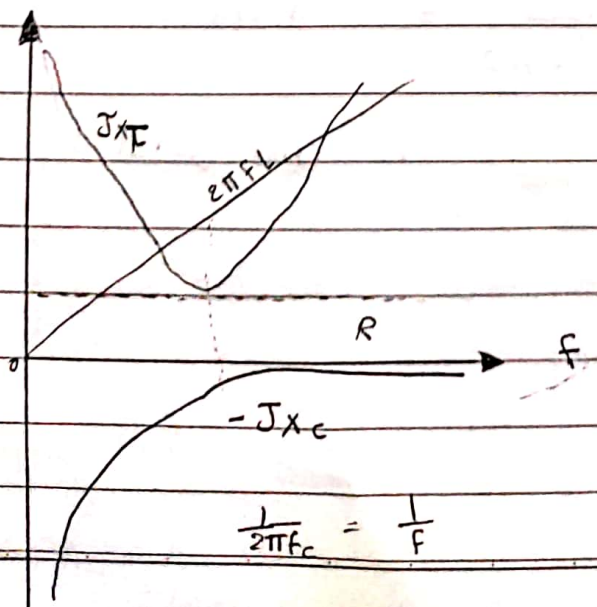 JXT
2πFL
R
0
f
-JXc
1/2πfc = 1/f